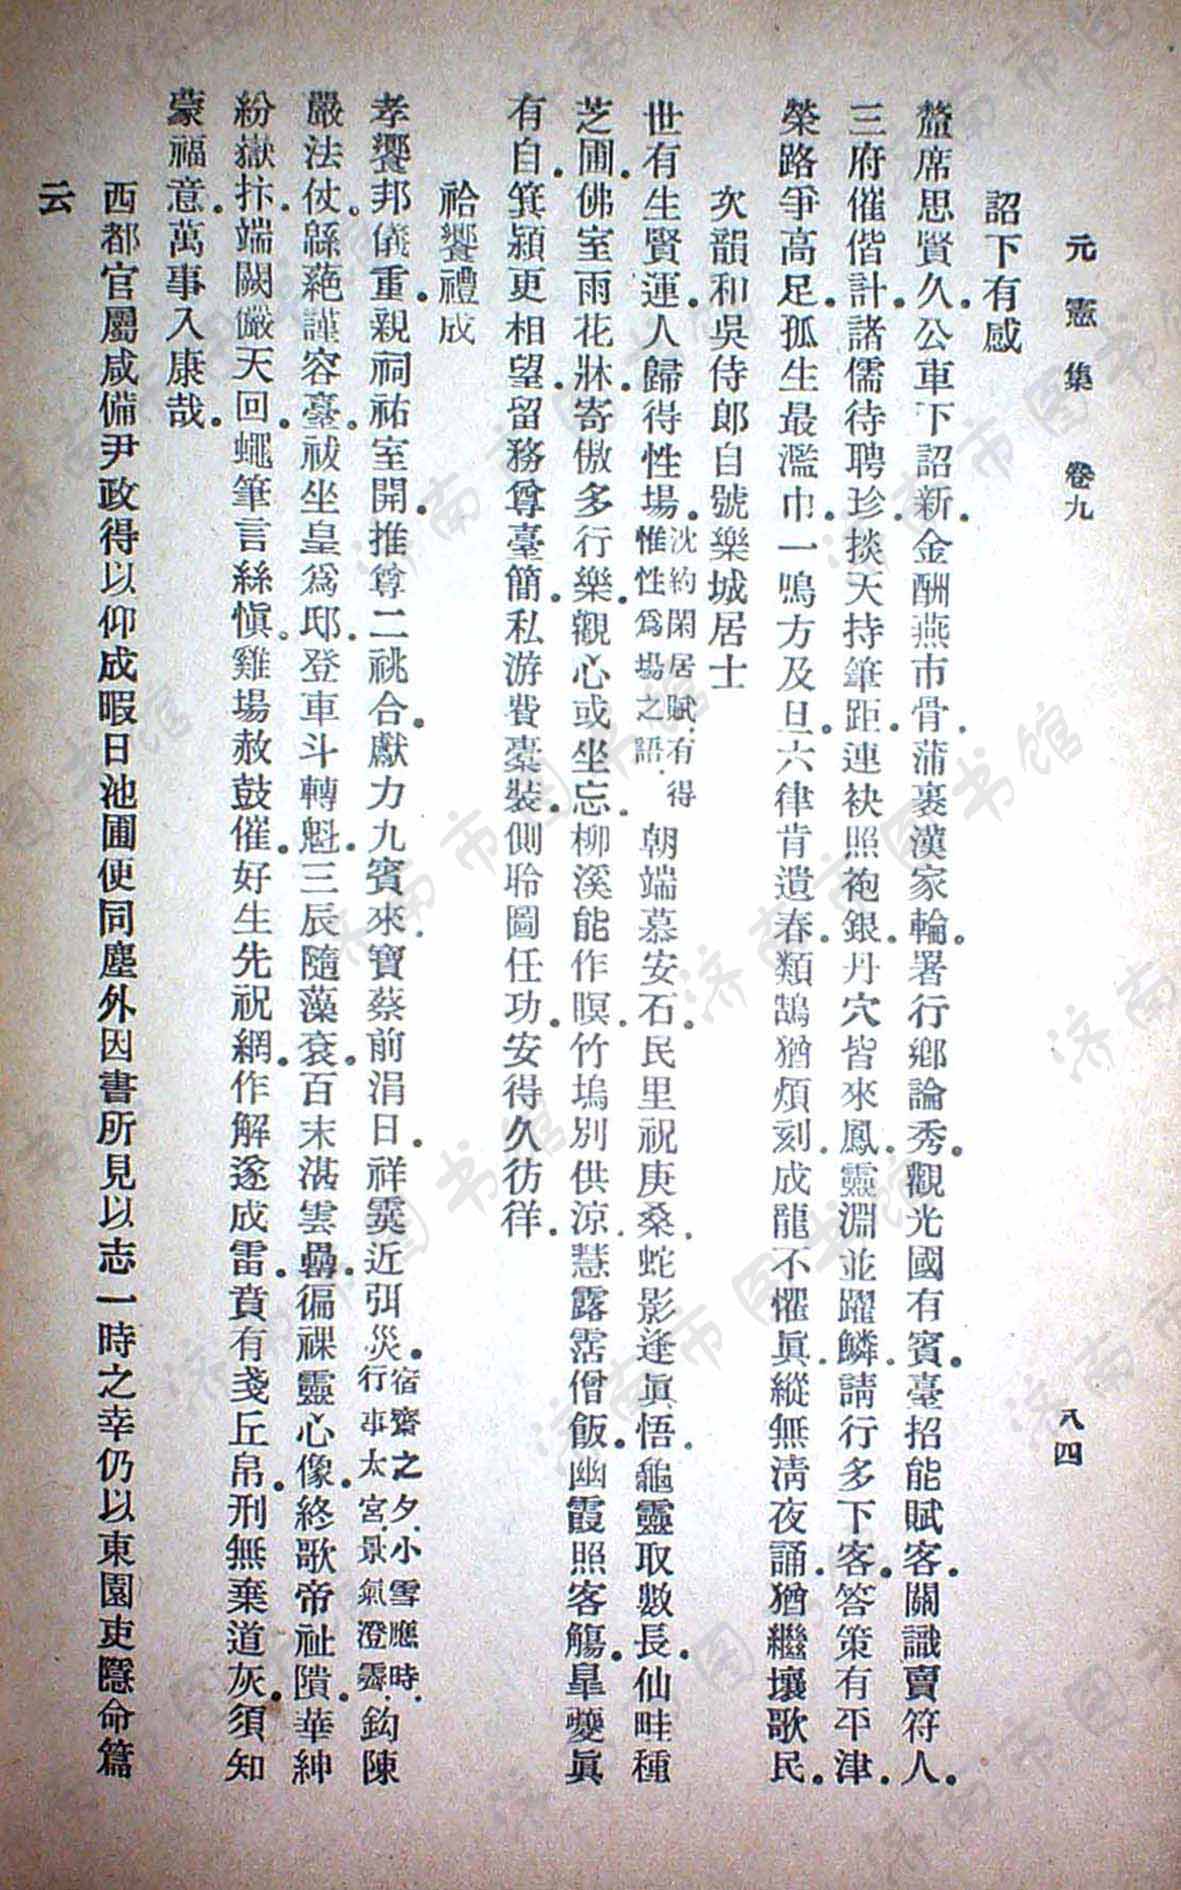 元憲集 卷九 八四
詔下有感
釐席思賢久。公車下詔新。金酬燕市骨。蒲裹漢家輪。署行鄉論秀。觀光國有賓。臺招能賦客。關識賣符人。
三府催偕計。諸儒待聘珍。掞天持筆距。連袂照袍銀。丹穴皆來鳳。靈淵並躍鱗。請行多下客。答策有平津。
榮路爭高足。孤生最濫巾。一鳴方及旦。六律肯遺春。類鵠猶煩刻。成龍不懼眞。縱無淸夜誦。猶繼壤歌民。
次韻和吳侍郎自號樂城居士
世有生賢運。人歸得性場。沈約閑居賦。有得惟性爲場之語。朝端慕安石。民里祝庚桑。蛇影逢眞悟。龜靈取數長。仙畦種
芝圃。佛室雨花牀。寄傲多行樂。觀心或坐忘。柳溪能作暝。竹塢別供涼。慧露霑僧飯。幽霞照客觴。臯夔眞
有自。箕潁更相望。留務尊臺簡。私游費橐裝。側聆圖任功。安得久彷徉。
祫饗禮成
孝饗邦儀重。親祠祐室開。推尊二祧合。獻力九賓來。寶蔡前涓日。祥霙近弭災。宿齋之夕。小雪應時。行事太宮。景氣澄霽。鈎陳
嚴法仗。緜蕝謹容臺。祓坐皇爲邸。登車斗轉魁。三辰隨藻袞。百末湛雲罍。徧祼靈心像。終歌帝祉隤。華紳
紛嶽抃。端闕儼天回。蠅筆言絲愼。雞場赦鼓催。好生先祝網。作解遂成雷。賁有戔丘帛。刑無棄道灰。須知
蒙福意。萬事入康哉。
西都官屬咸備尹政得以仰成暇日池圃便同塵外因書所見以志一時之幸仍以東園吏隱命篇
云